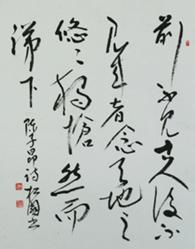 前不见古人後不
见来者念天地之
悠々獨愴然而
涕下
陈子昂诗